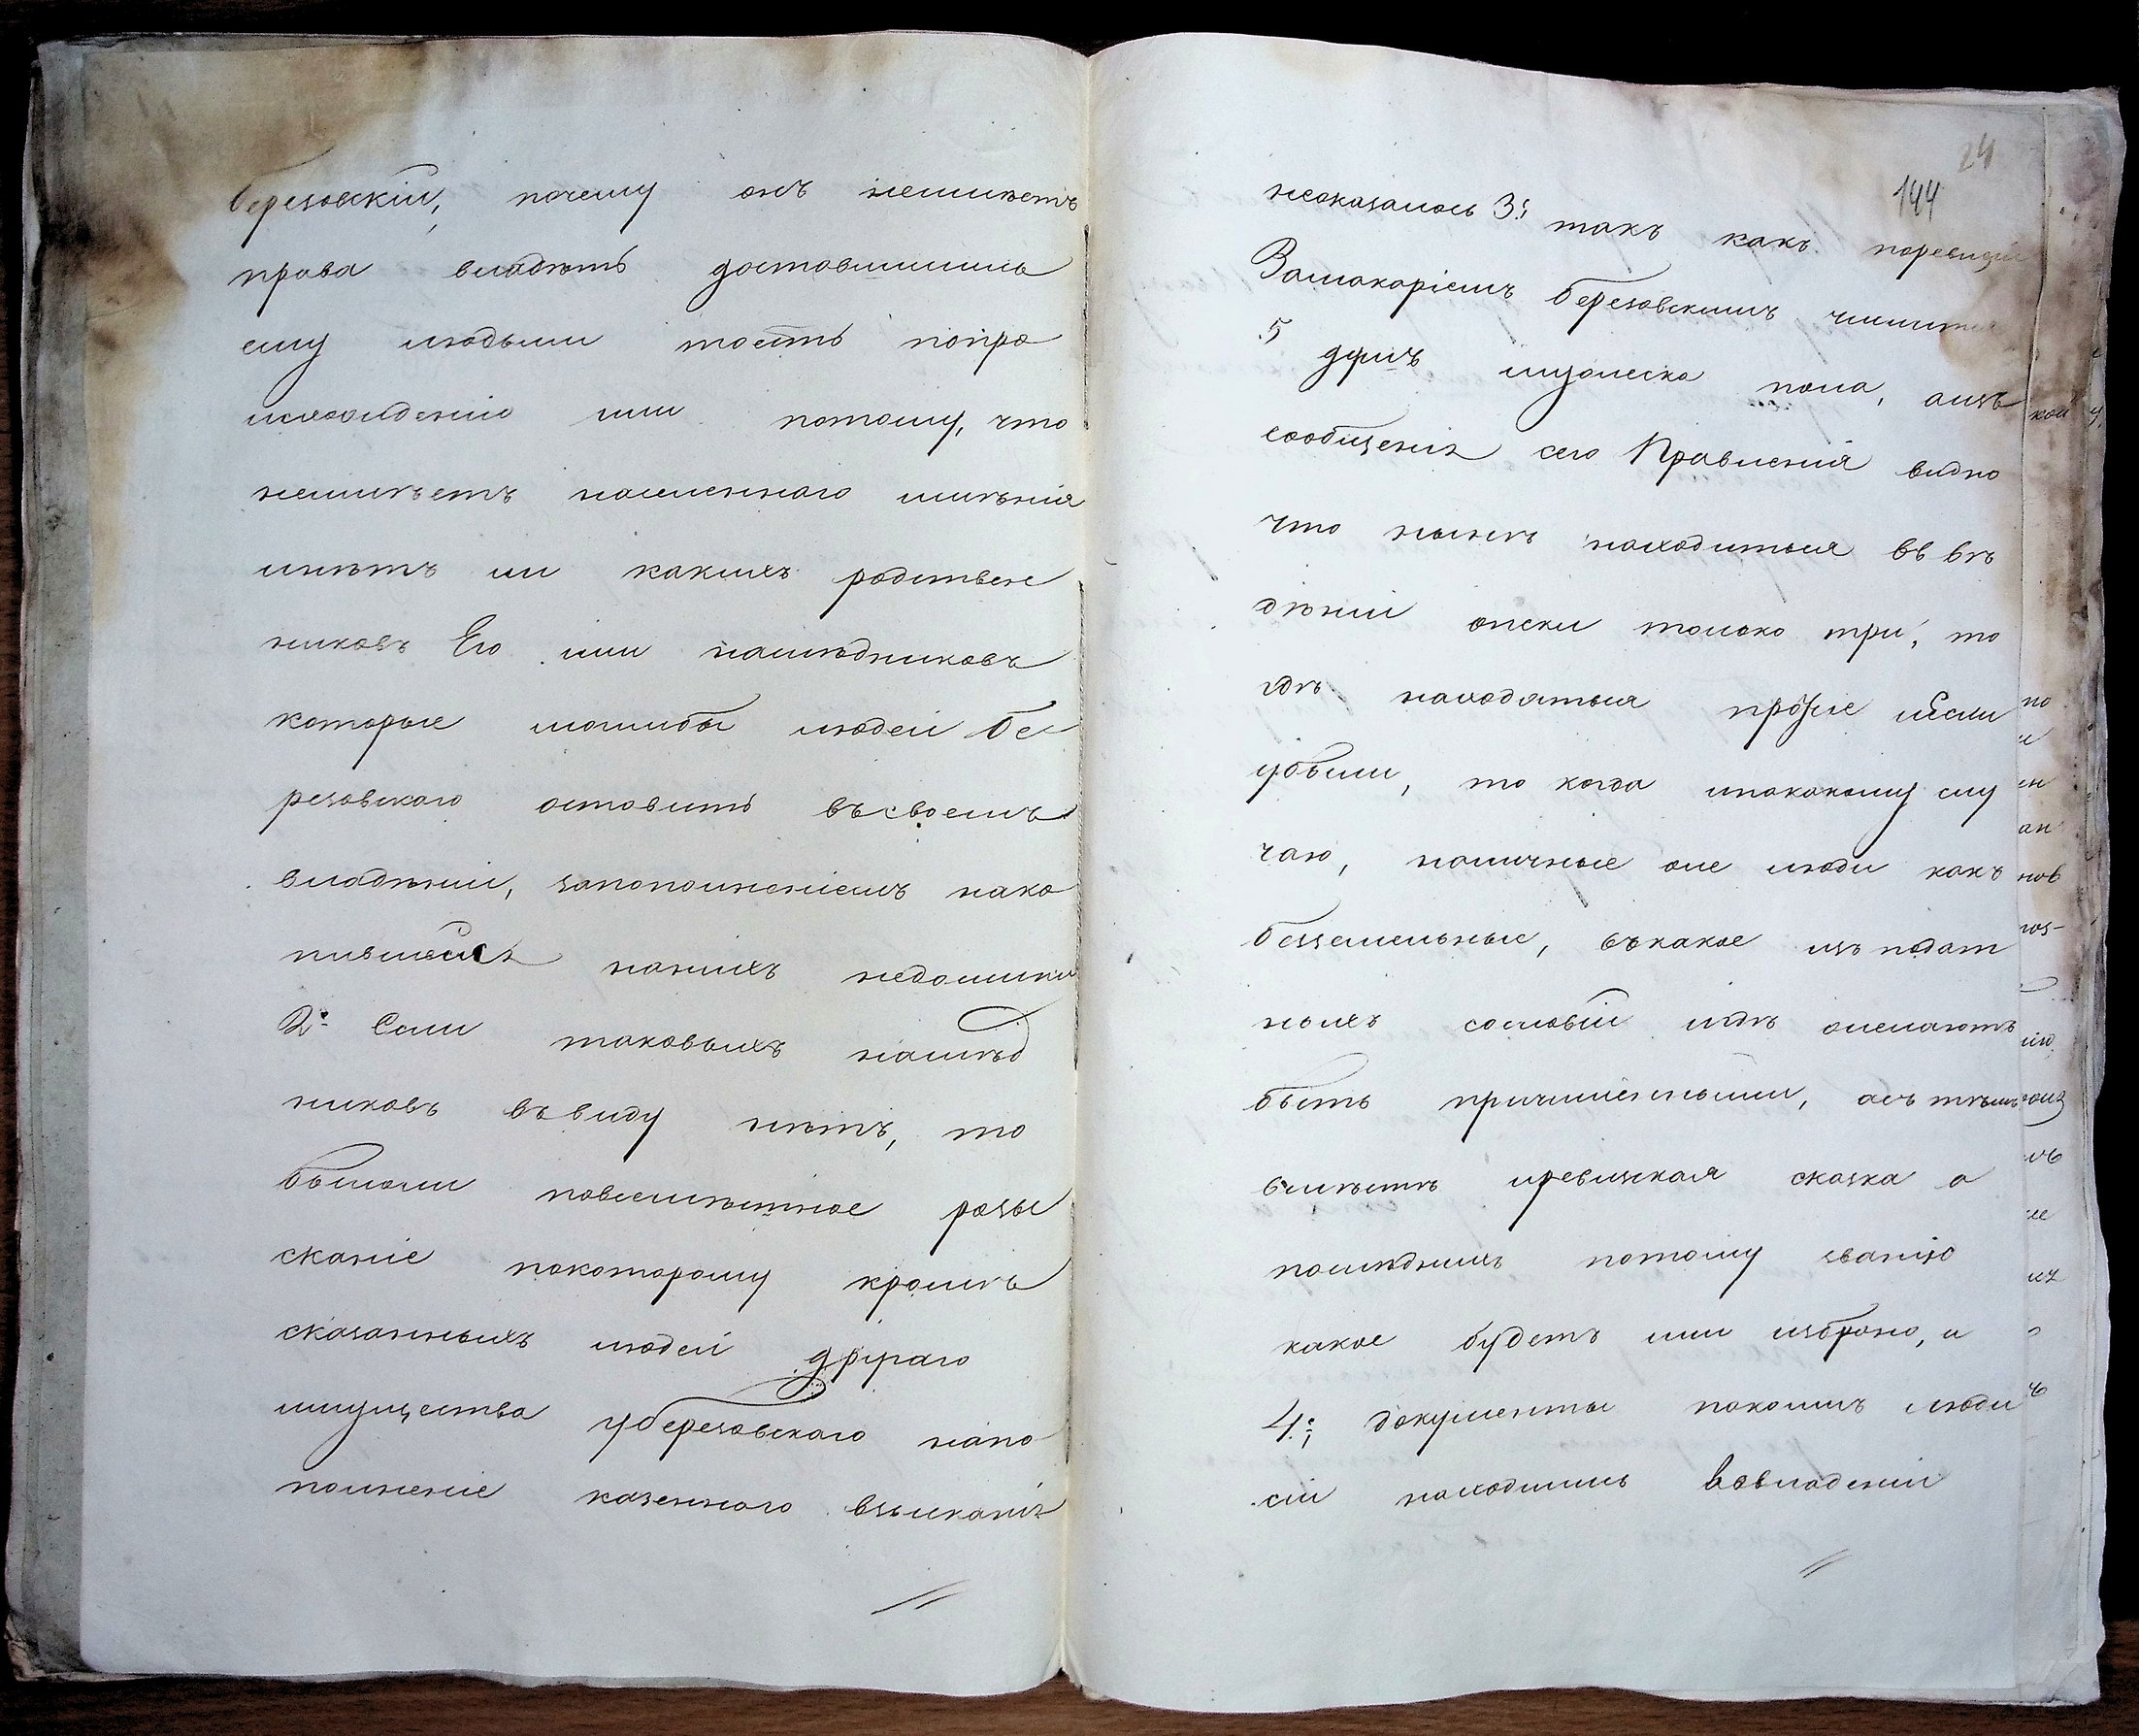 березовскій, почему онъ неимѣетъ
права владѣть доставшимися
ему людьми тоесть попро
исхожденію или потому, что
неимѣетъ населеннаго имѣнія
инѣтъ ли какихъ родствен
никовъ Его или наслѣдниковъ
которые моглибы людей Бе
резовскаго оставить въсвоемъ
владѣніи, запополненіемъ нако
пившейся наних недоимки
2е. Если таковыхъ наслѣд
никовъ въвиду нѣтъ, то
былоли повсемѣстное розы
сканіе покоторому кромѣ
сказанныхъ людей другаго
имущества уберезовскаго напо
полненіе казеннаго взысканія
24
144
неоказалось 3е; такъ какъ поревизіи
Замакаріемъ березовскимъ числится
5 душъ мужеска пола, аизъ
сообщенія сего Правленія видно
что нынѣ находиться въ вѣ
дѣніи опеки только три, то
гдѣ находяться прочіе иесли
убыли, то когда ипокакому слу
чаю, наличные оле люди какъ
безземельные, въкакое изъ подат
ныхъ сословій игдѣ желаютъ
быть причисленными, асъ тѣмъ
вмѣстѣ иревизская сказка о
послѣднихъ потому званію
какое будетъ ими избрано, и
4.; документы покоимъ люди
сіи находились вовладеніи